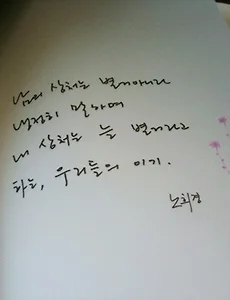 남의 상처는 별거아니라
냉정히 말하며
내 상처는 늘 별거라고
하는, 우리들의 이기.
노희경